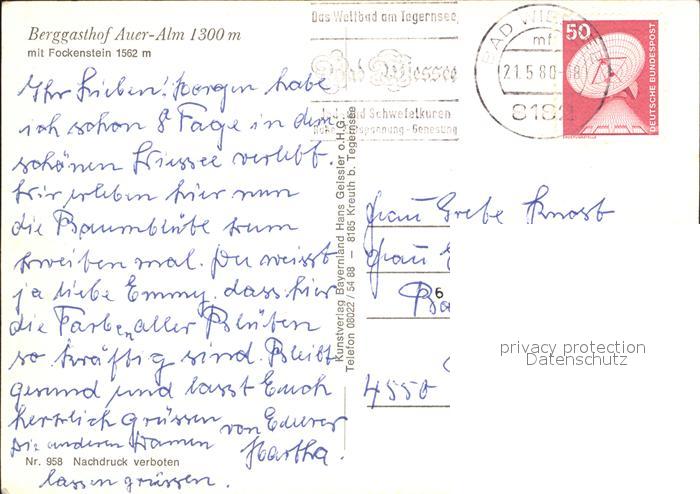 Berggasthof Auer-Alm 1300 m
mit Fockenstein 1562 m
Ihr Lieben! Morgen habe
ich schon 8 Tage in dem
schönen Wiessee verlebt.
Wir erleben hier nun
die Baumblüte zum
zweiten mal. Du weisst
ja liebe Emmy, dass hier
die Farben aller Blüten
so kräftig sind. Bleibt
gesund und lasst Euch
herzlich grüssen von Eurer
Die anderen Damen Martha.
lassen grüssen.
Nr. 958 Nachdruck verboten
Kunstverlag Bayernland Hans Geissler o.H.G.
Telefon 08022 / 54 88 — 8185 Kreuth b. Tegernsee
Das Weltbad am Tegernsee,
Bad Wiessee
und Schwefelkuren
Entspannung - Genesung
BAD WIESSEE
mf
21.5.80-8
8182
50
DEUTSCHE BUNDESPOST
Frau Grete Knost
Frau
6
4550
privacy protection
Datenschutz